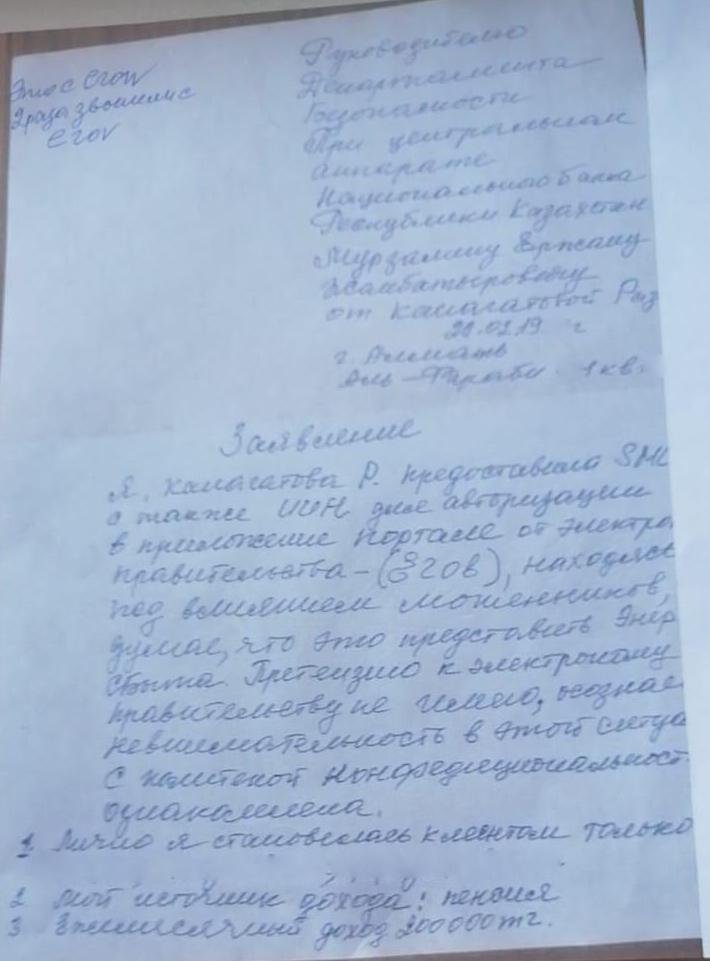 Это с Егов
2 раза звонили с
Егов
Руководителю
Департамента
Безопасности
При центральном
аппарате
Национального банка
Республики Казахстан
Мурзалину Ержану
Жамбатыровичу
от Калагатовой Роз
г. Алматы
Аль-Фараби 1 кв.
Заявление
Я, Калагатова Р. предоставила SMS
а также ИИН для авторизации
в приложение портале от электро
правительства - (Егов), находясь
под влиянием мошенников,
думая, что это представить Энер
сбыта. Претензию к электроному
правительству не имею, осознаю
невнимательность в этой ситуа
С политикой Конфедициональност
ознакомлена.
1 Лично я становилась клиентом только
2 мой источник дохода: пенсия
3 Ежемесячный доход 200000тг.